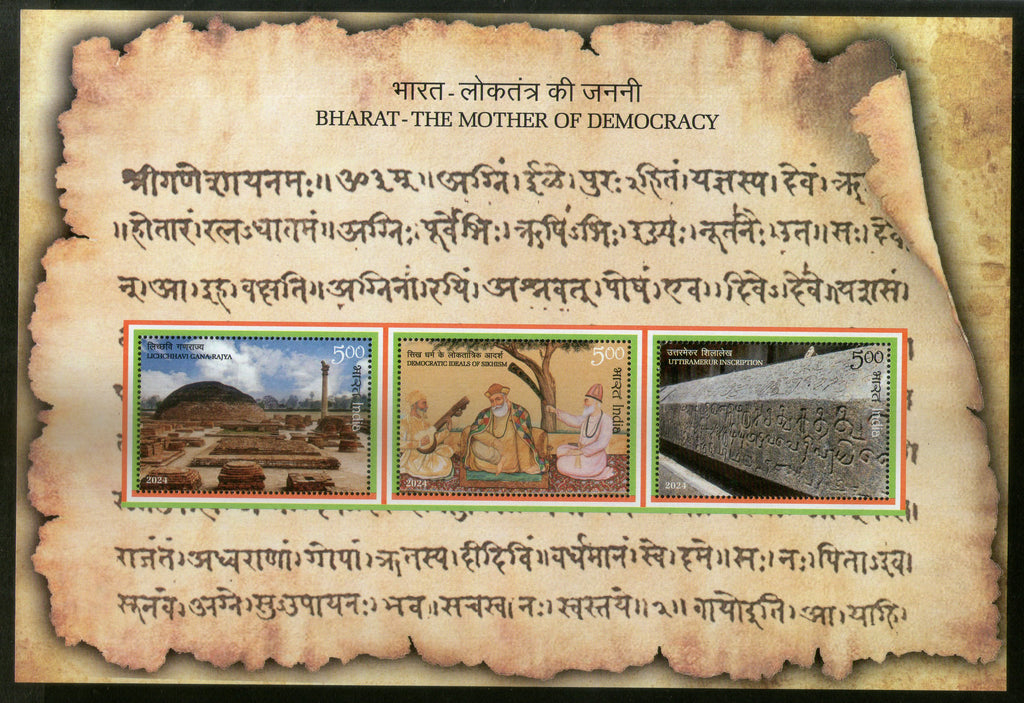 भारत - लोकतंत्र की जननी
BHARAT - THE MOTHER OF DEMOCRACY
श्रीगणेशायनमः॥ॐ३म्॥अग्निं।ईळे।पुरःऽहितं।यज्ञस्य।देवं।ऋ
॥होतारं।रत्नऽधातमं॥अग्निः।पूर्वेभिः।ऋषिऽभिः।ईड्यः।नूतनैः।उत॥सः।
न्।आ।इह।वक्षति॥अग्निना।रयिं।अश्नवत्।पोषं।एव।दिवेऽदिवे॥यशसं
लिच्छवि गणराज्य
LICHCHHAVI GANA-RAJYA
5.00
भारत India
2024
सिख धर्म के लोकतांत्रिक आदर्श
DEMOCRATIC IDEALS OF SIKHISM
5.00
भारत India
2024
उत्तरमेरुर शिलालेख
UTTIRAMERUR INSCRIPTION
5.00
भारत India
2024
राजंतं।अध्वराणां।गोपां।ऋतस्य।दीदिविं॥वर्धमानं।स्वे।दमे॥सः।नः।पिताऽइव।
सूनवे।अग्ने।सुऽउपायनः।भव॥सचस्व।नः।स्वस्तये॥२॥वायोइति।आ।याहि।